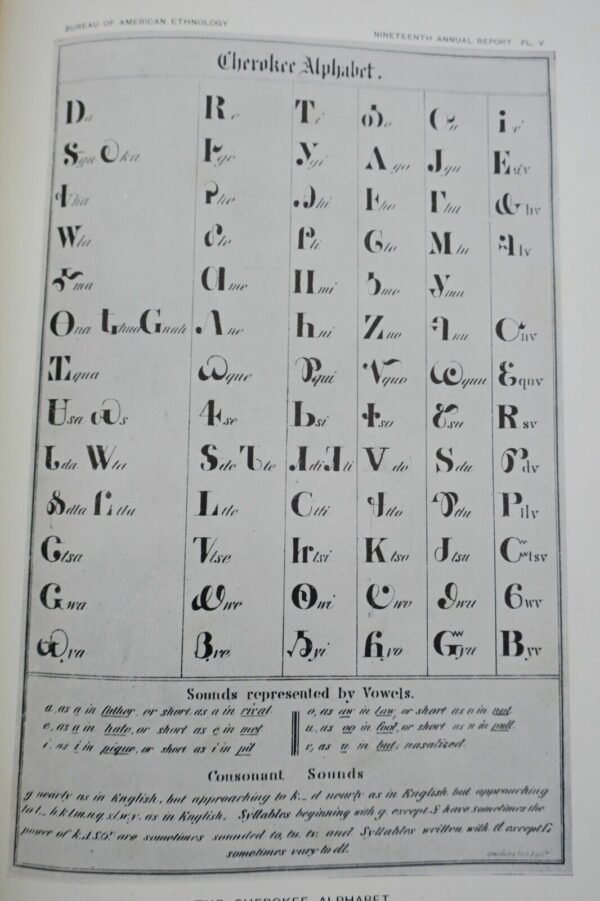 BUREAU OF AMERICAN ETHNOLOGY
NINETEENTH ANNUAL REPORT PL. V
Cherokee Alphabet.
Ꭰa Ꭱe Ꭲi Ꭳo Ꭴu Ꭵv
Ꭶga Ꭷka Ꭸge Ꭹgi Ꭺgo Ꭻgu Ꭼgv
Ꭽha Ꭾhe Ꭿhi Ꮀho Ꮁhu Ꮂhv
Ꮃla Ꮄle Ꮅli Ꮆlo Ꮇlu Ꮈlv
Ꮉma Ꮊme Ꮋmi Ꮌmo Ꮍmu
Ꮎna Ꮏhna Ꮐnah Ꮑne Ꮒni Ꮓno Ꮔnu Ꮕnv
Ꮖqua Ꮗque Ꮘqui Ꮙquo Ꮚquu Ꮛquv
Ꮜsa Ꮝs Ꮞse Ꮟsi Ꮠso Ꮡsu Ꮢsv
Ꮣda Ꮤta Ꮥde Ꮦte Ꮧdi Ꮨti Ꮩdo Ꮪdu Ꮫdv
Ꮬdla Ꮭtla Ꮮtle Ꮯtli Ꮰtlo Ꮱtlu Ꮲtlv
Ꮳtsa Ꮴtse Ꮵtsi Ꮶtso Ꮷtsu Ꮸtsv
Ꮹwa Ꮺwe Ꮻwi Ꮼwo Ꮽwu Ꮾwv
Ꮿya Ᏸye Ᏹyi Ᏺyo Ᏻyu Ᏼyv
Sounds represented by Vowels.
a, as a in father, or short as a in rival
e, as a in hate, or short as e in met
i, as i in pique, or short as i in pit
o, as aw in law, or short as o in not
u, as oo in fool, or short as u in pull
v, as u in but, nasalized.
Consonant Sounds
g nearly as in English, but approaching to k._ d nearly as in English but approaching
to t._ h.k.l.m.n.q.s.t.w.y. as in English. Syllables beginning with g. except Ꭶ have sometimes the
power of k. Ꭺ.Ꮪ.Ꮫ. are sometimes sounded to, tu, tv. and Syllables written with tl except Ꮭ
sometimes vary to dl.
THE CHEROKEE ALPHABET